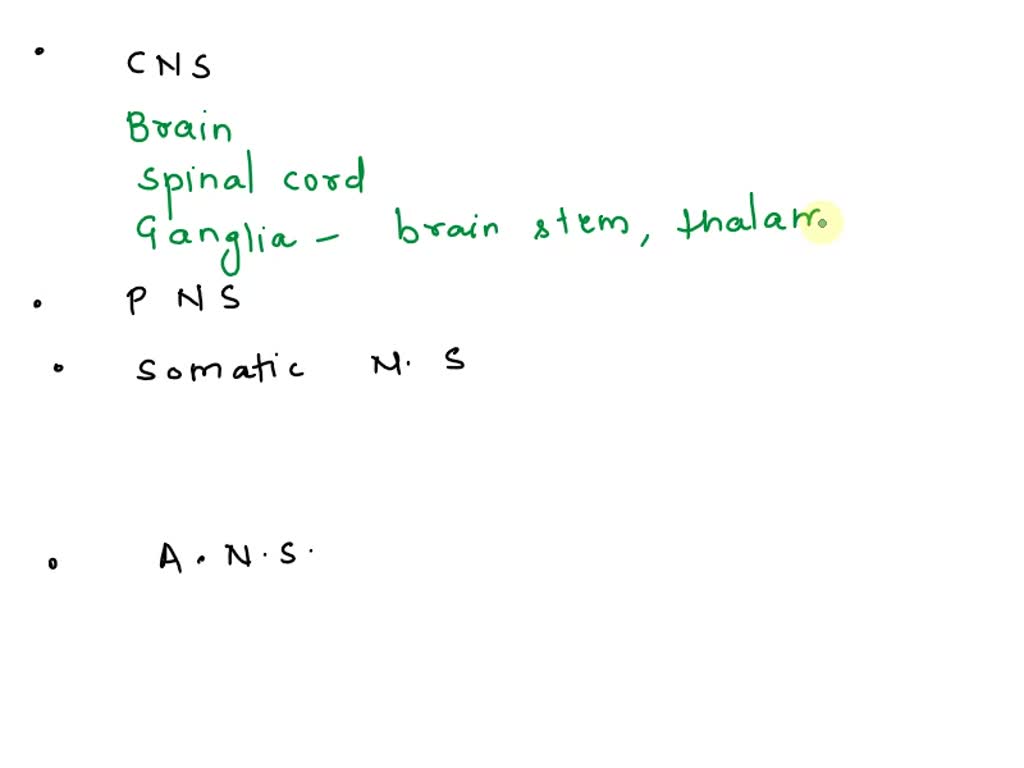 • CNS
Brain
Spinal cord
Ganglia - brain stem, thalam
• PNS
• Somatic N. S
• A. N. S.